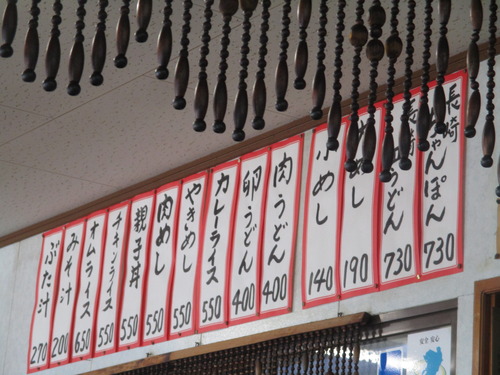 長崎
ちゃんぽん
730
長崎
うどん
730
めし
190
小めし
140
肉うどん
400
卵うどん
400
カレーライス
550
やきめし
550
肉めし
550
親子丼
550
チキンライス
550
オムライス
650
みそ汁
200
ぶた汁
270
安全 安心